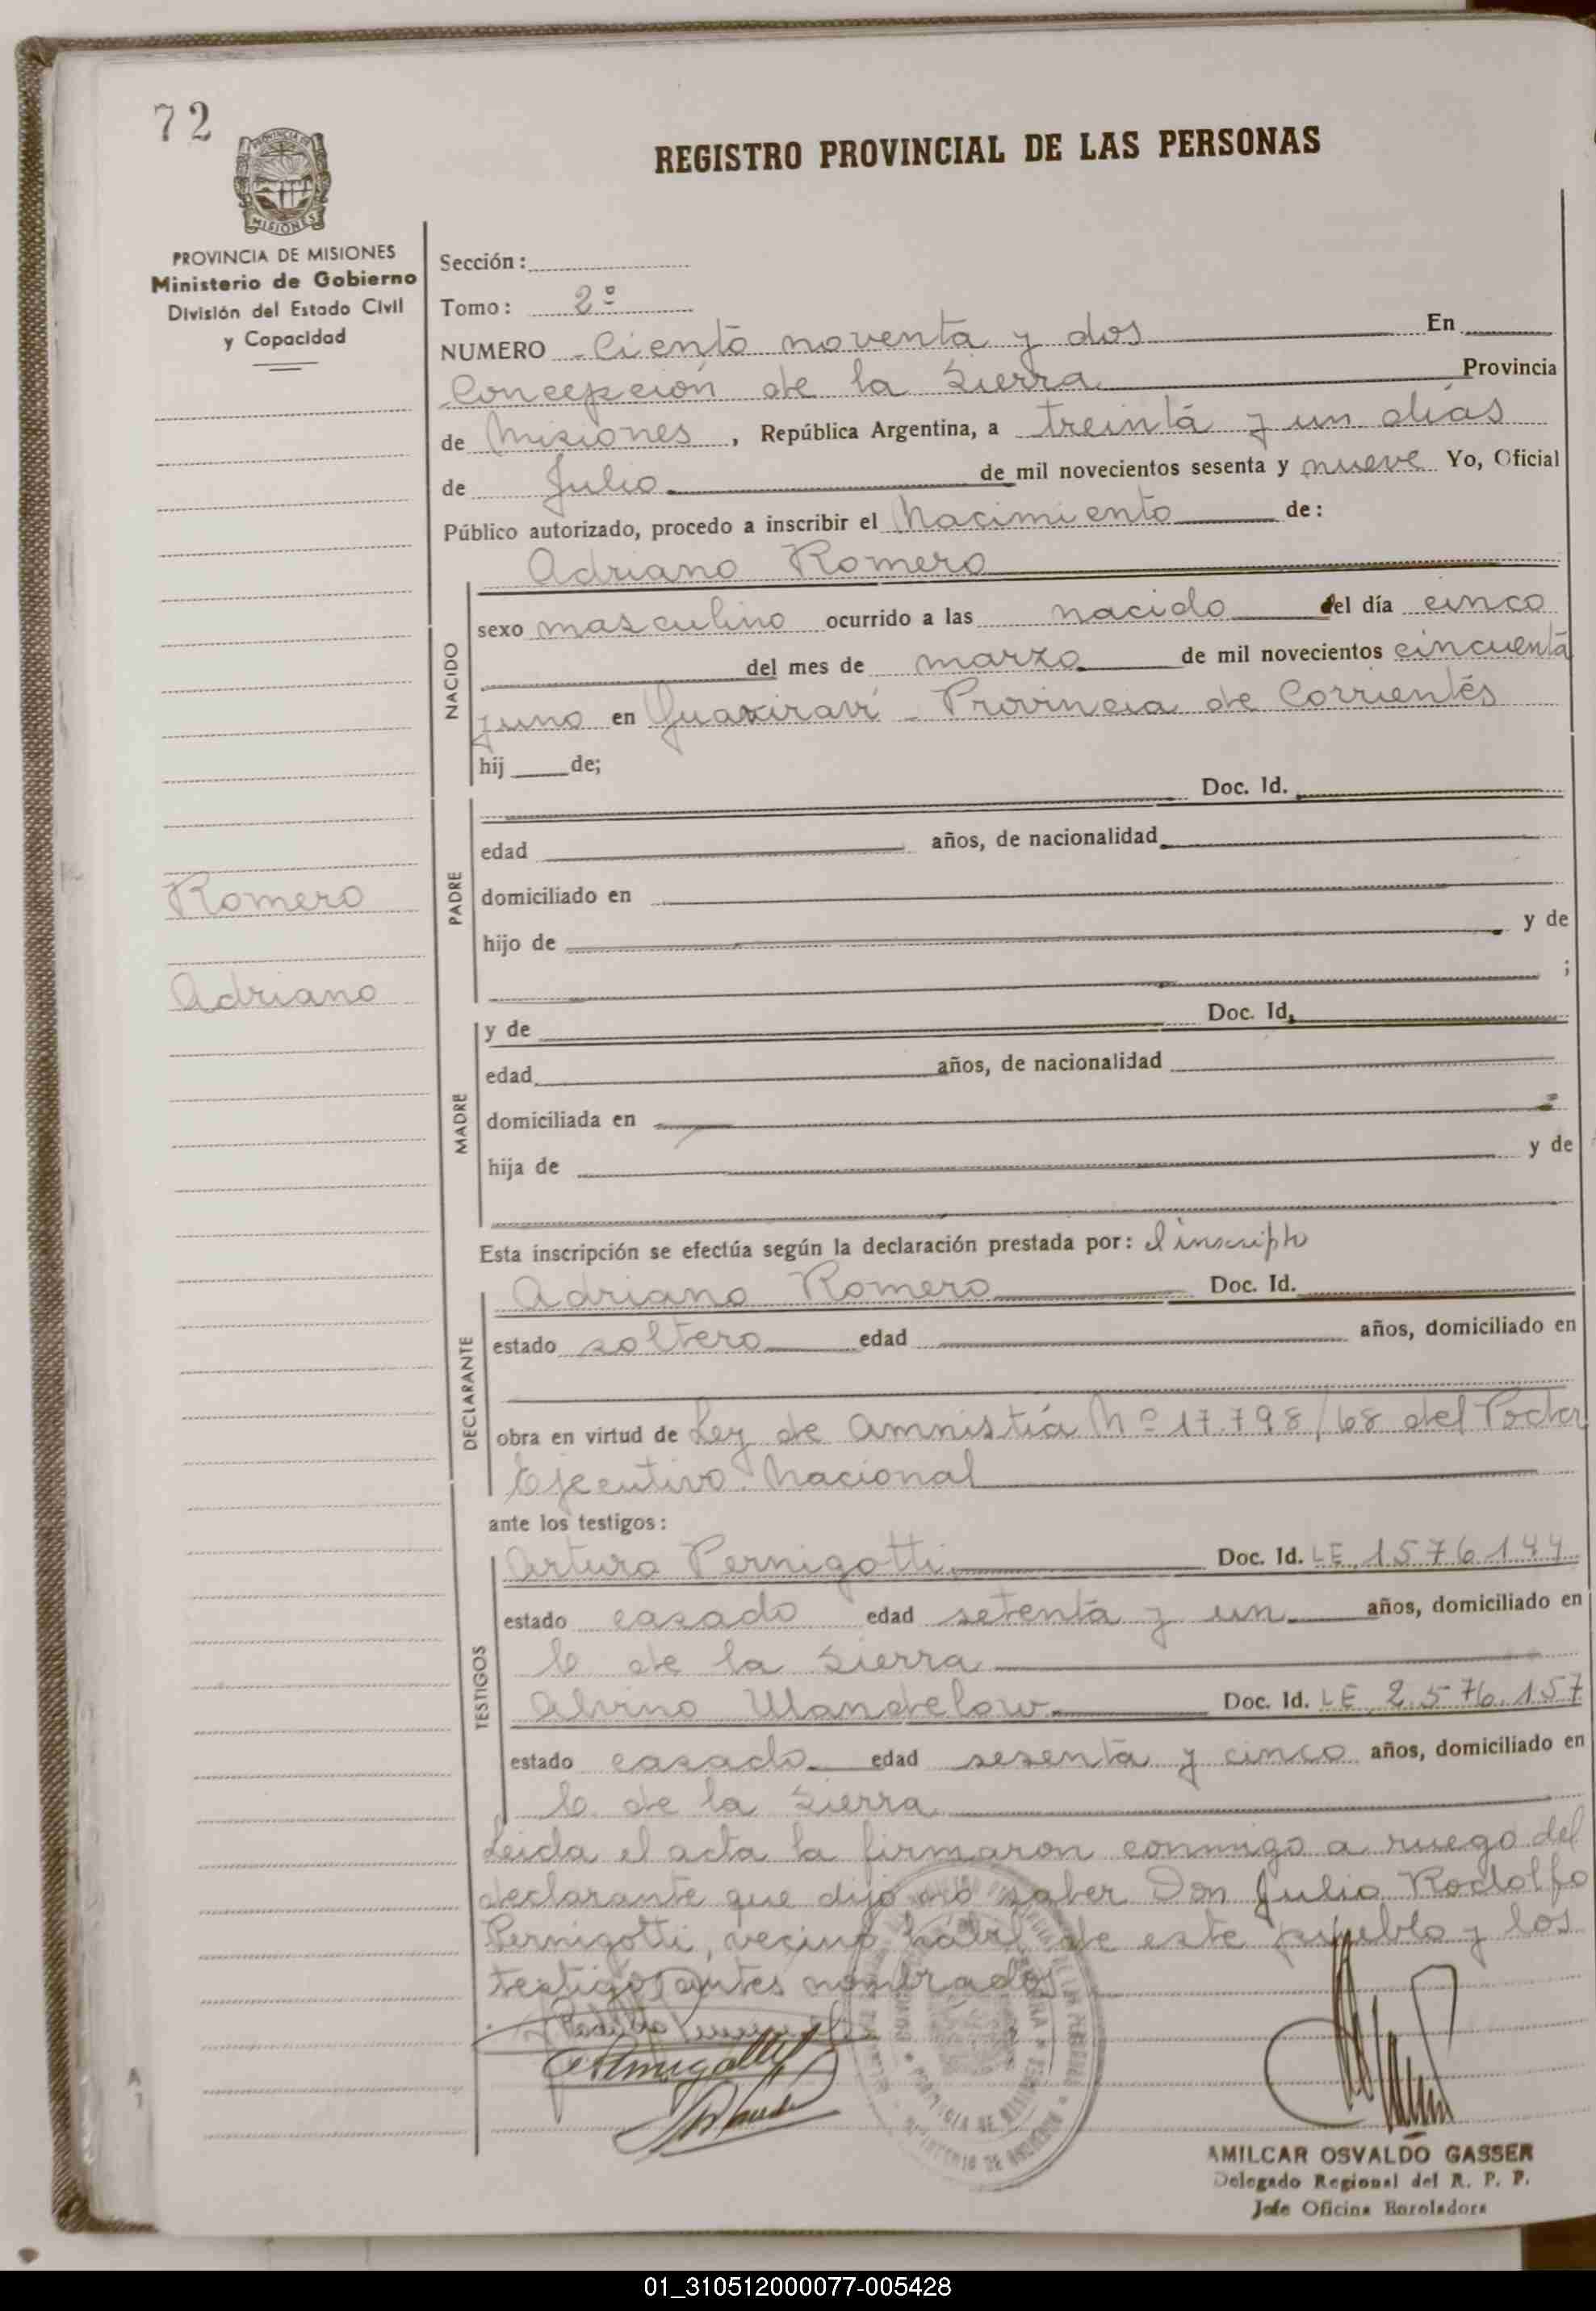 72
REGISTRO PROVINCIAL DE LAS PERSONAS
PROVINCIA DE MISIONES
Ministerio de Gobierno
División del Estado Civil
y Capacidad
Sección:
Tomo: 2º
NUMERO - Ciento noventa y dos En
Concepción de la Sierra Provincia
de Misiones, República Argentina, a treinta y un días
de Julio de mil novecientos sesenta y nueve Yo, Oficial
Público autorizado, procedo a inscribir el Nacimiento de:
Adriano Romero
NACIDO
sexo masculino ocurrido a las nacido del día cinco
del mes de marzo de mil novecientos cincuenta
y uno en Guaxiraví - Provincia de Corrientes
hij de;
Romero
Adriano
PADRE
Doc. Id.
edad años, de nacionalidad
domiciliado en
hijo de y de
;
MADRE
y de Doc. Id.
edad años, de nacionalidad
domiciliada en
hija de y de
Esta inscripción se efectúa según la declaración prestada por: el inscripto
DECLARANTE
Adriano Romero Doc. Id.
estado soltero edad años, domiciliado en
obra en virtud de Ley de Amnistía Nº 17.798/68 del Poder
Ejecutivo Nacional
ante los testigos:
TESTIGOS
Arturo Pernigotti Doc. Id. LE 1576144
estado casado edad setenta y un años, domiciliado en
C de la Sierra
Alvino Mandelow Doc. Id. LE 2.576.157
estado casado edad sesenta y cinco años, domiciliado en
C. de la Sierra
Leida el acta la firmaron conmigo a ruego del
declarante que dijo no saber Don Julio Rodolfo
Pernigotti, vecino hábil de este pueblo y los
testigos antes nombrados
AMILCAR OSVALDO GASSER
Delegado Regional del R. P. P.
Jefe Oficina Enroladora
01_310512000077-005428